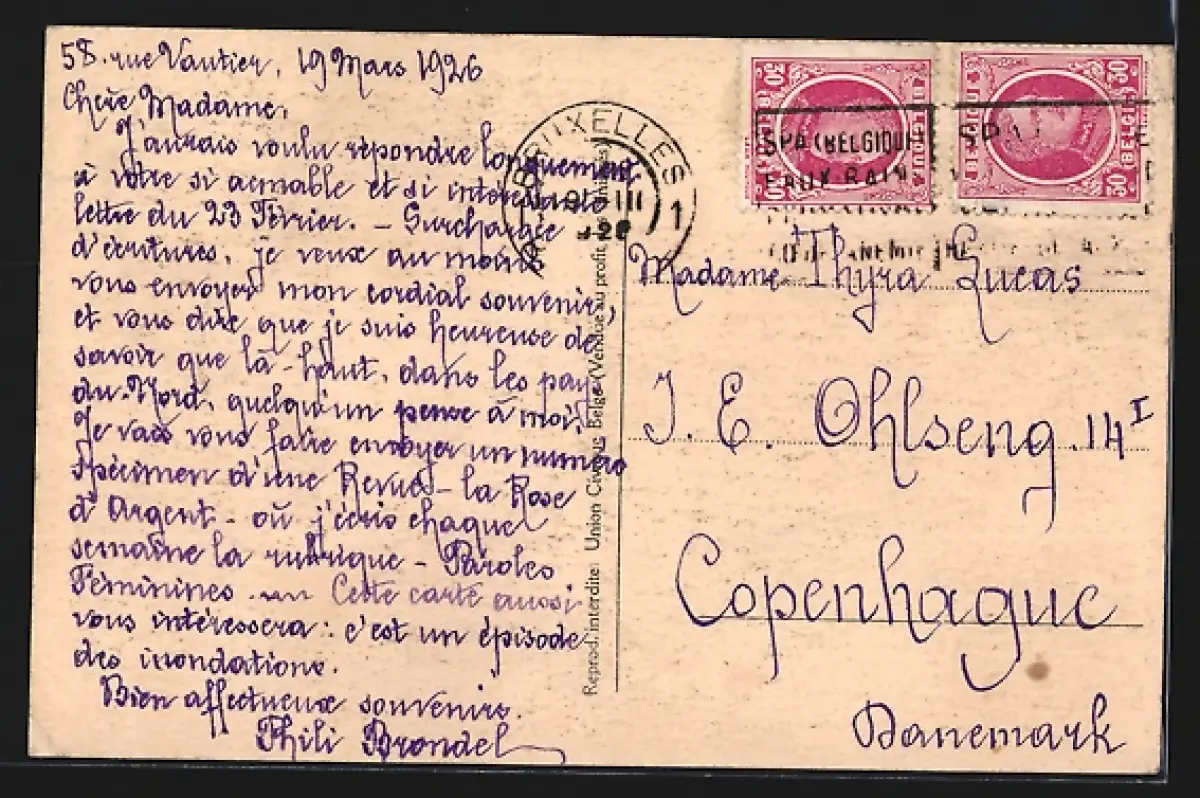 58. rue Vautier, 19 Mars 1926
Chère Madame,
J'aurais voulu répondre longuement
à votre si aimable et si intéressante
lettre du 23 Février. - Surchargée
d'écritures, je veux au moins
vous envoyer mon cordial souvenir,
et vous dire que je suis heureuse de
savoir que là-haut, dans les pays
du Nord, quelqu'un pense à moi.
Je vais vous faire envoyer un numéro
spécimen d'une Revue - la Rose
d'Argent - où j'écris chaque
semaine la rubrique - Paroles
Féminines. Cette carte aussi
vous intéressera : c'est un épisode
des inondations.
Bien affectueux souvenirs.
Thili Brondel
Reprod. interdite: Union Civiques Belge (Vendue au profit
BRUXELLES
1
19 III
BELGIQUE
30
(BELGIE)
30
SPA (BELGIQUE
SP
E
Madame Thyra Lucas
J. E. Ohlseng. 14 I
Copenhague
Danemark